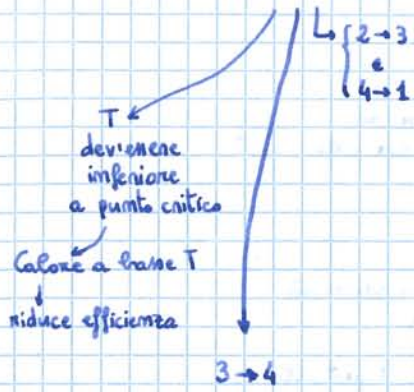 2→3
e
4→1
T
dev'essere
inferiore
a punto critico
Calore a basse T
riduce efficienza
3→4